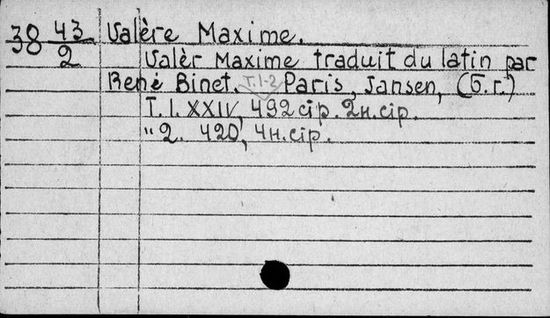 38 43/2 Valère Maxime.
Valèr Maxime traduit du latin par
René Binet. T.1-2 Paris, Jansen, (б.г.)
T.1. XXIV, 492 cip. 2н.cip.
" 2. 420, 4н.cip.